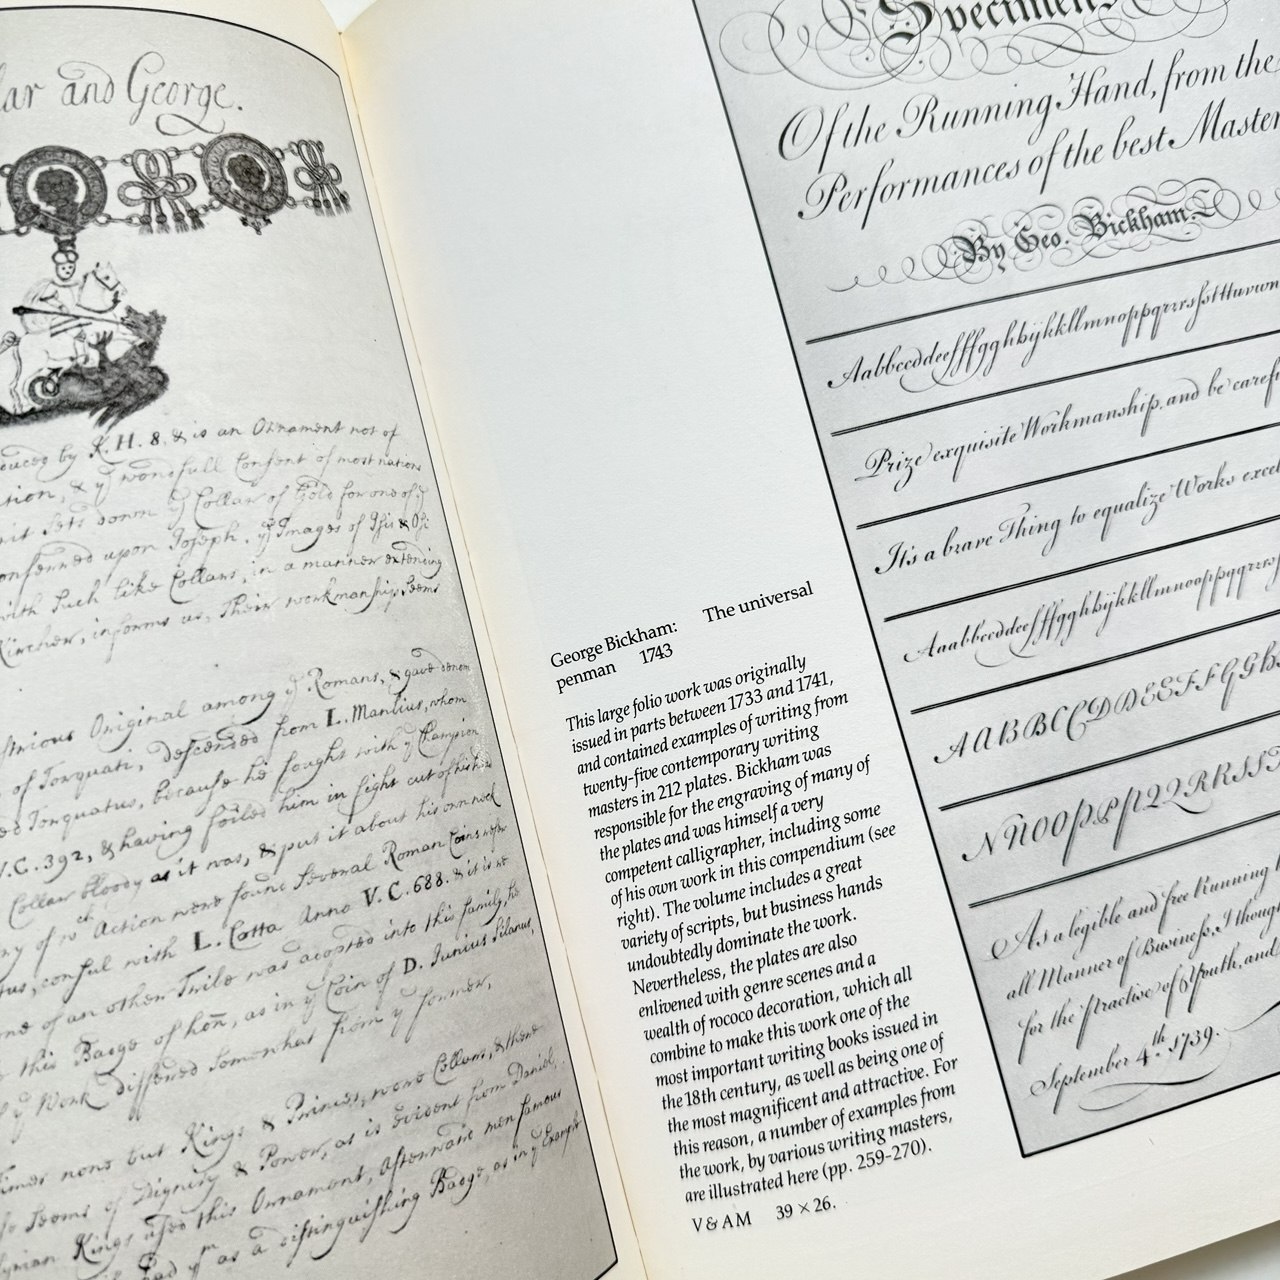 lar and George.
by K. H. 8. & is an Ornament not of
tion, & yͤ wonderfull Consent of most nations
it sets down yͤ Collar of Gold for one of yͤ
upon Joseph. yͤ Images of Isis & Osi
with such like Collars, in a manner extending
Kircher, informs us, Their workmanship seems
Original among yͤ Romans, & gave denom
of Torquati, descended from L. Manlius, whom
Torquatus, because he fought with yͤ Champion
V. C. 392, & having foiled him in fight cut of his head
Collar bloody as it was, & put it about his own neck
ry of wᶜʰ Action were found several Roman Coins
consul with L. Cotta Anno V. C. 688. & it is
one of an other Tribe was adopted into this family, he
this Badge of hon̄, as in yͤ Coin of D. Junius Silanus,
yͤ Work differed somewhat from yͤ former,
times none but Kings & Princes, wore Collars, & these
seems of Dignity & Power, as is evident from Daniel,
Kings used this Ornament, Afterwards men famous
as a distinguishing Badge, as in yͤ Example
George Bickham: The universal
penman 1743
This large folio work was originally
issued in parts between 1733 and 1741,
and contained examples of writing from
twenty-five contemporary writing
masters in 212 plates. Bickham was
responsible for the engraving of many of
the plates and was himself a very
competent calligrapher, including some
of his own work in this compendium (see
right). The volume includes a great
variety of scripts, but business hands
undoubtedly dominate the work.
Nevertheless, the plates are also
enlivened with genre scenes and a
wealth of rococo decoration, which all
combine to make this work one of the
most important writing books issued in
the 18th century, as well as being one of
the most magnificent and attractive. For
this reason, a number of examples from
the work, by various writing masters,
are illustrated here (pp. 259-270).
V & AM 39 × 26.
Specimens
Of the Running Hand, from the
Performances of the best Master
By Geo. Bickham.
Aabbccddeefffgghhijkkllmnoppqrrsſstttuvwn
Prize exquisite Workmanship, and be carefu
It's a brave Thing to equalize Works excel
Aaabbccddeeffffgghhijkkllmnnooppqqrrsſ
AABBCCDDEEFFGGHh
NNOOPPPQQRRSST
As a legible and free Running
all Manner of Business, I though
for the Practise of Youth, and
September 4.ᵗʰ 1739.